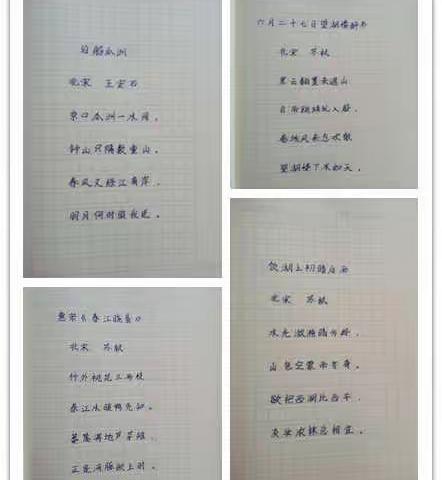 泊船瓜洲
北宋 王安石
京口瓜洲一水间，
钟山只隔数重山。
春风又绿江南岸，
明月何时照我还。
六月二十七日望湖楼醉书
北宋 苏轼
黑云翻墨未遮山
白雨跳珠乱入船。
卷地风来忽吹散
望湖楼下水如天。
惠崇《春江晓景》
北宋 苏轼
竹外桃花三两枝
春江水暖鸭先知。
蒌蒿满地芦芽短，
正是河豚欲上时。
饮湖上初晴后雨
北宋 苏轼
水光潋滟晴方好，
山色空蒙雨亦奇。
欲把西湖比西子，
淡妆浓抹总相宜。